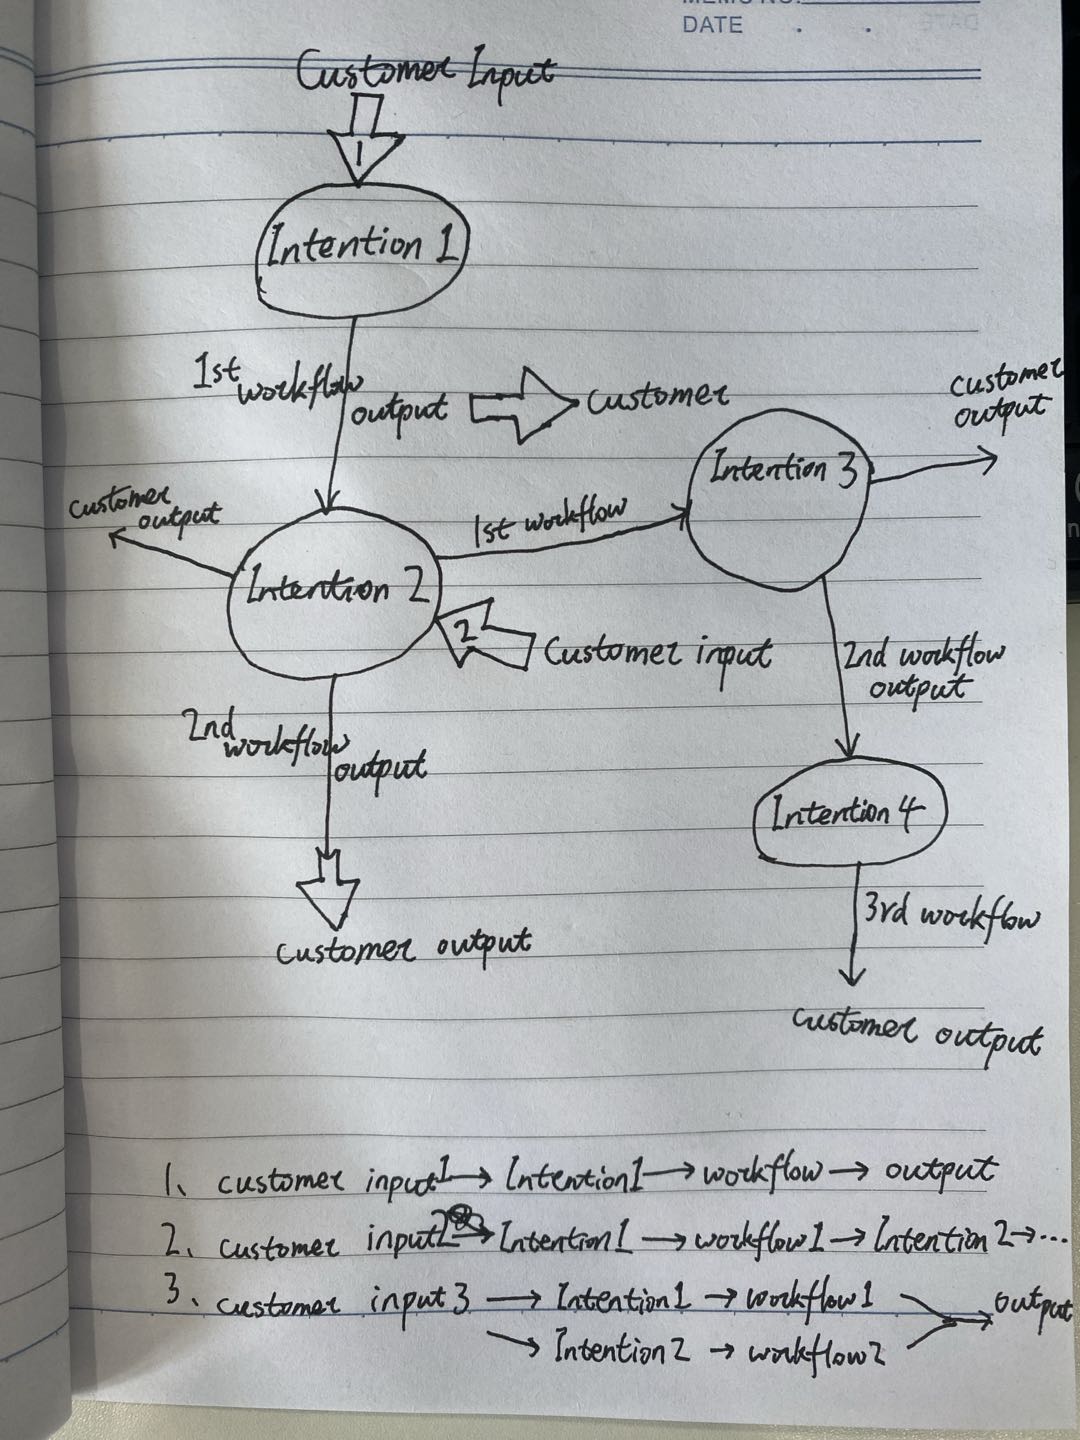 MEMO NO.
DATE . .
Customer Input
1
Intention 1
1st workflow output
Customer
customer output
Intention 3
customer output
1st workflow
Intention 2
2
Customer input
2nd workflow output
2nd workflow output
Intention 4
3rd workflow
customer output
customer output
1、 customer input1 → Intention1 → workflow → output
2、 customer input2 → Intention1 → workflow1 → Intention2 → ...
3、 customer input3 → Intention1 → workflow1
output
→ Intention2 → workflow2